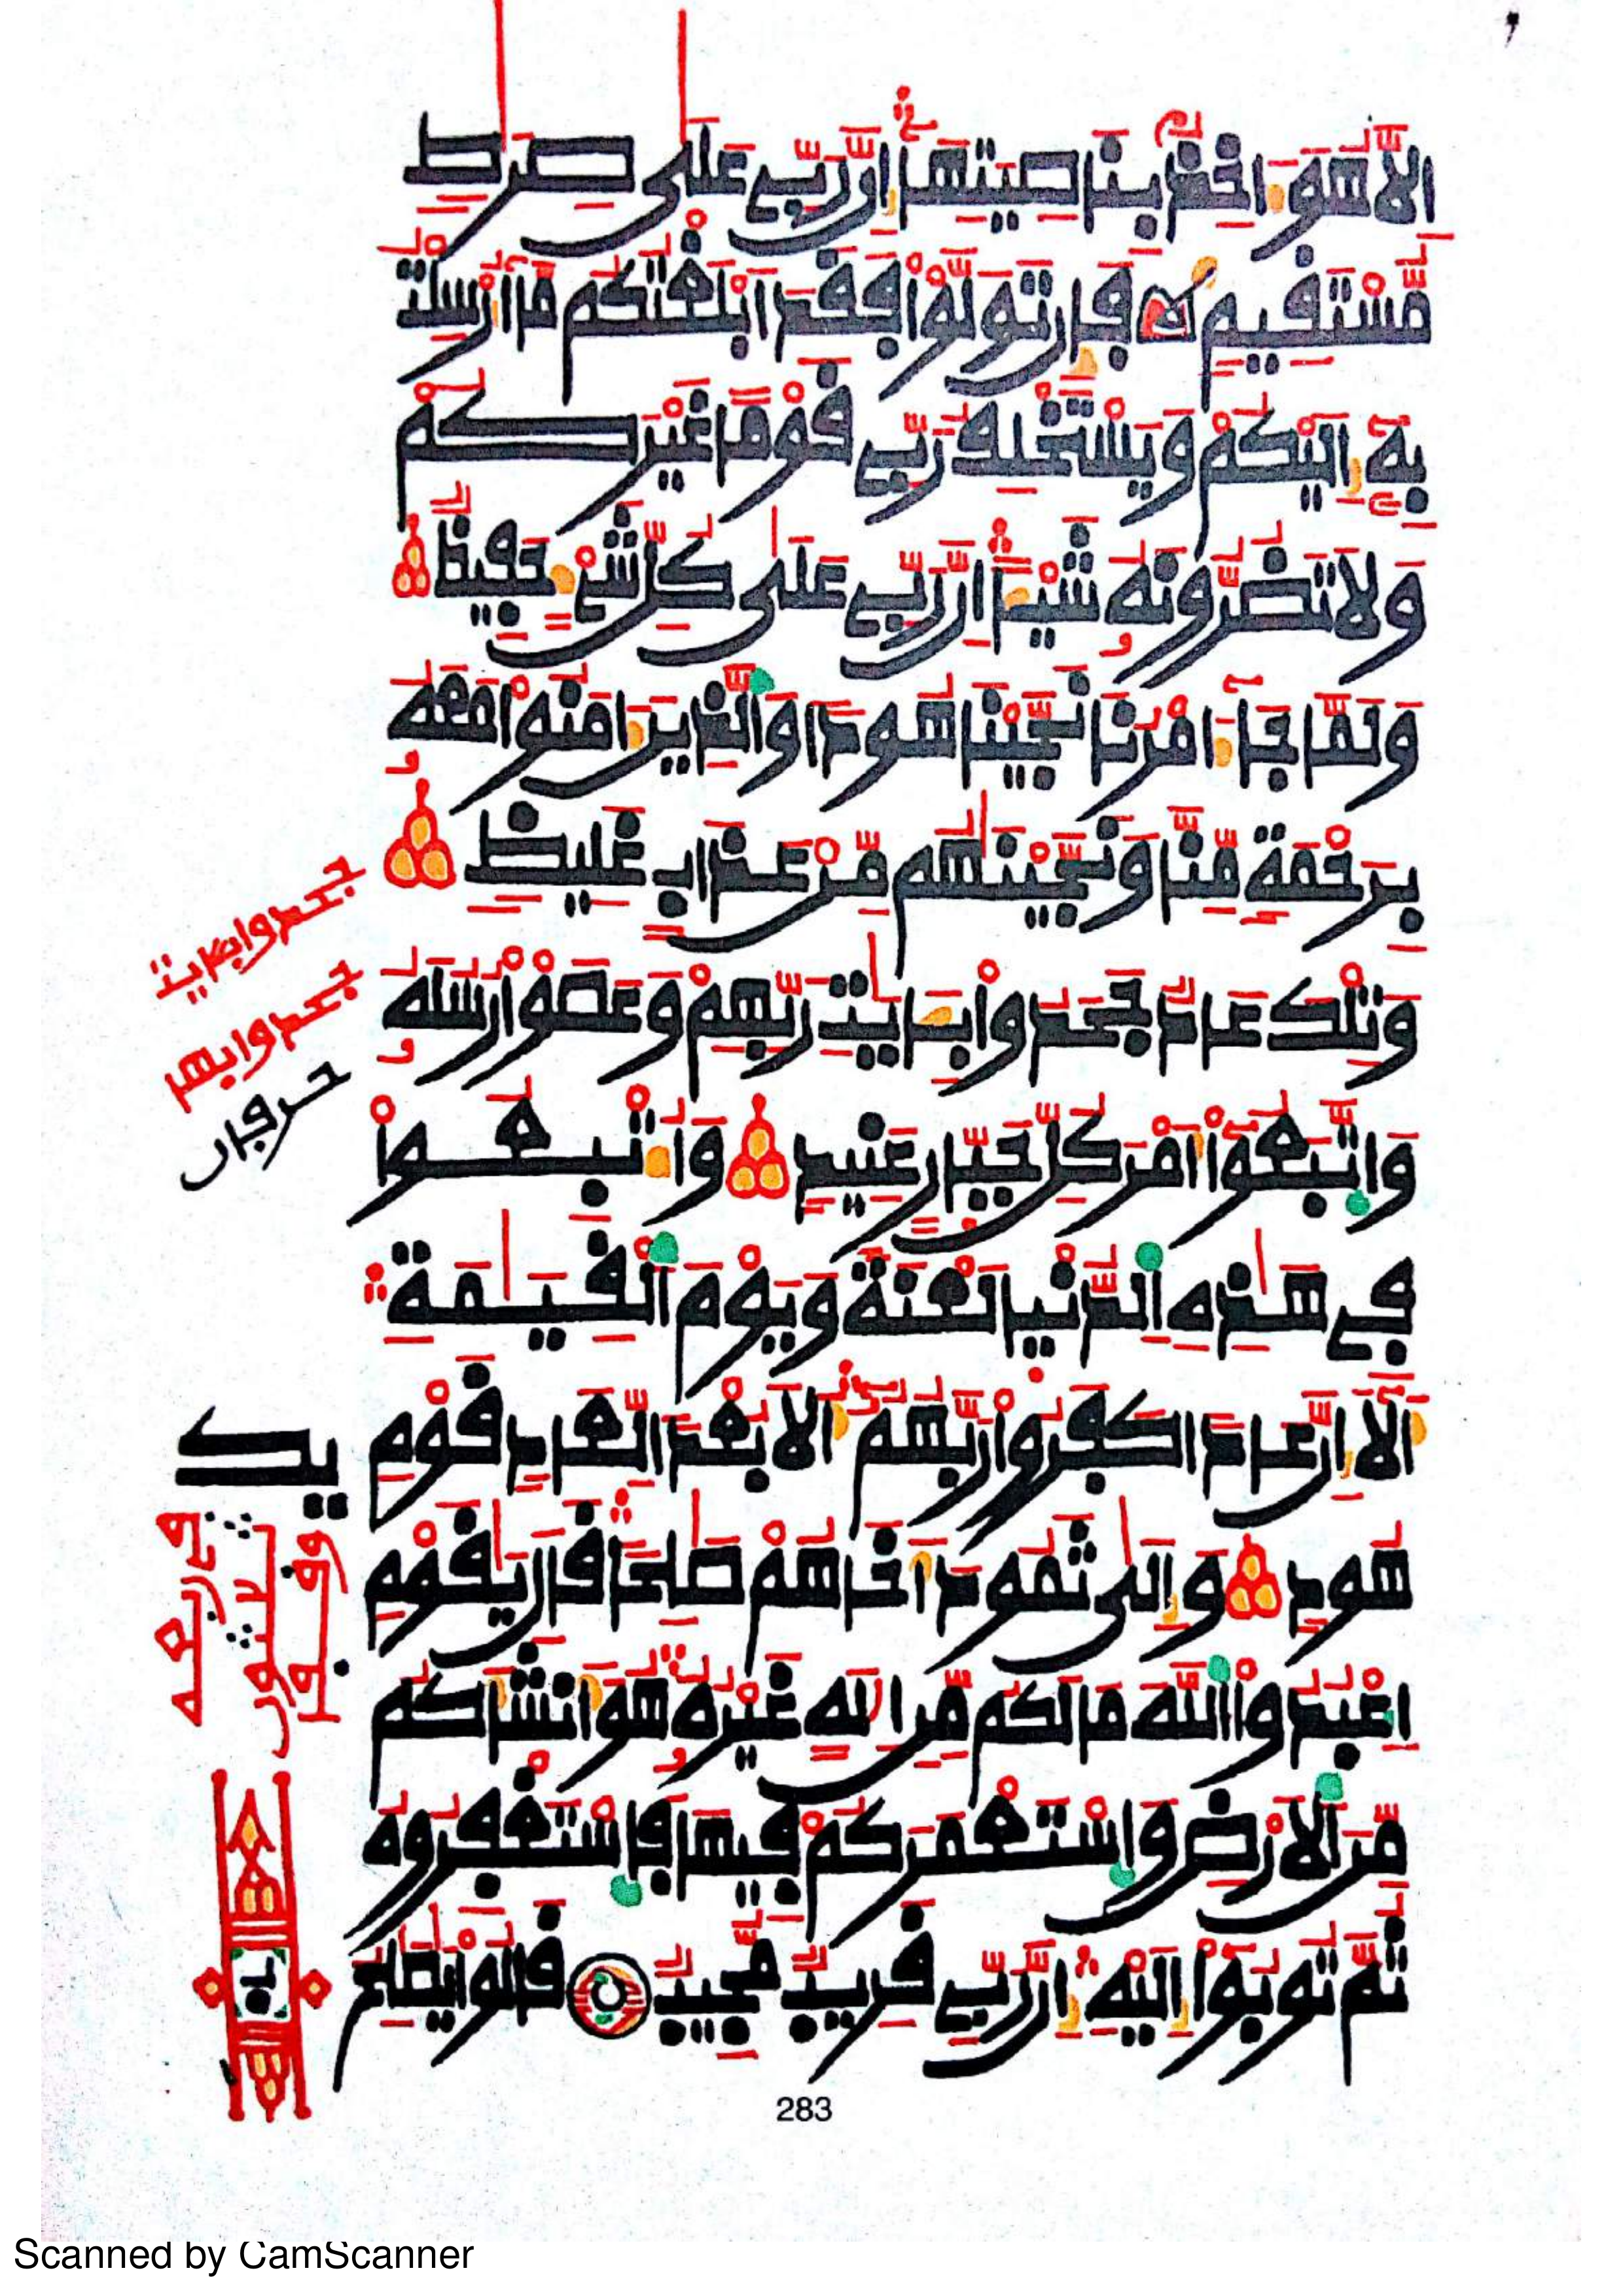 إِلَّا هُوَ ءَاخِذٌۢ بِنَاصِيَتِهَآ إِنَّ رَبِّے عَلَىٰ صِرَٰطٖ
مُّسْتَقِيمٖ فَإِن تَوَلَّوْاْ فَقَدَ اَبْلَغْتُكُم مَّآ أُرْسِلْتُ
بِهِۦٓ إِلَيْكُمْ وَيَسْتَخْلِفُ رَبِّے قَوْماً غَيْرَكُمْ
وَلَا تَضُرُّونَهُۥ شَيْـٔاً إِنَّ رَبِّے عَلَىٰ كُلِّ شَےْءٍ حَفِيظٞ
وَلَمَّا جَآءَ امْرُنَا نَجَّيْنَا هُوداً وَالذِينَ ءَامَنُواْ مَعَهُۥ
بِرَحْمَةٖ مِّنَّا وَنَجَّيْنَٰهُم مِّنْ عَذَابٍ غَلِيظٖ
وَتِلْكَ عَادٞ جَحَدُواْ بِـَٔايَٰتِ رَبِّهِمْ وَعَصَوْاْ رُسُلَهُۥ
وَاتَّبَعُوٓاْ أَمْرَ كُلِّ جَبّ۪ارٍ عَنِيدٖ وَأُتْبِعُواْ
فِے هَٰذِهِ اِلدُّنْيَا لَعْنَةٗ وَيَوْمَ اَلْقِيَٰمَةِ
أَلَآ إِنَّ عَاداٗ كَفَرُواْ رَبَّهُمُۥٓ أَلَا بُعْداٗ لِّعَادٖ قَوْمِ
هُودٖ وَإِلَىٰ ثَمُودَ أَخَاهُمْ صَٰلِحاٗ قَالَ يَٰقَوْمِ
اِعْبُدُواْ اُللَّهَ مَا لَكُم مِّنِ اِلَٰهٍ غَيْرُهُۥ هُوَ أَنشَأَكُم
مِّنَ اَلَارْضِ وَاسْتَعْمَرَكُمْ فِيهَا فَاسْتَغْفِرُوهُ
ثُمَّ تُوبُوٓاْ إِلَيْهِ إِنَّ رَبِّے قَرِيبٞ مُّجِيبٞ قَالُواْ يَٰصَٰلِحُ
283
جحدوا بـٔايت
جحدوا بهم
حرفان
يك
Scanned by CamScanner